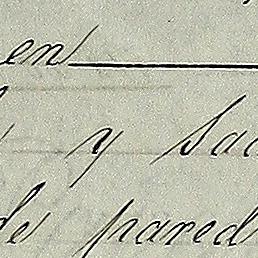 en
y sac
de pared